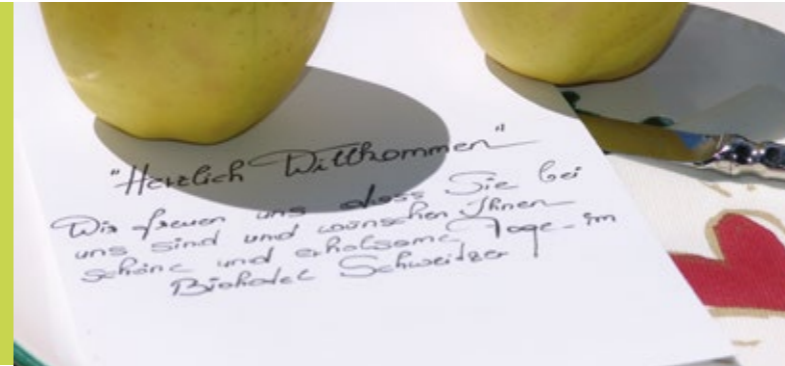 "Herzlich Willkommen"
Wir freuen uns dass Sie bei
uns sind und wünschen Ihnen
schöne und erholsame Tage im
Biohotel Schweitzer